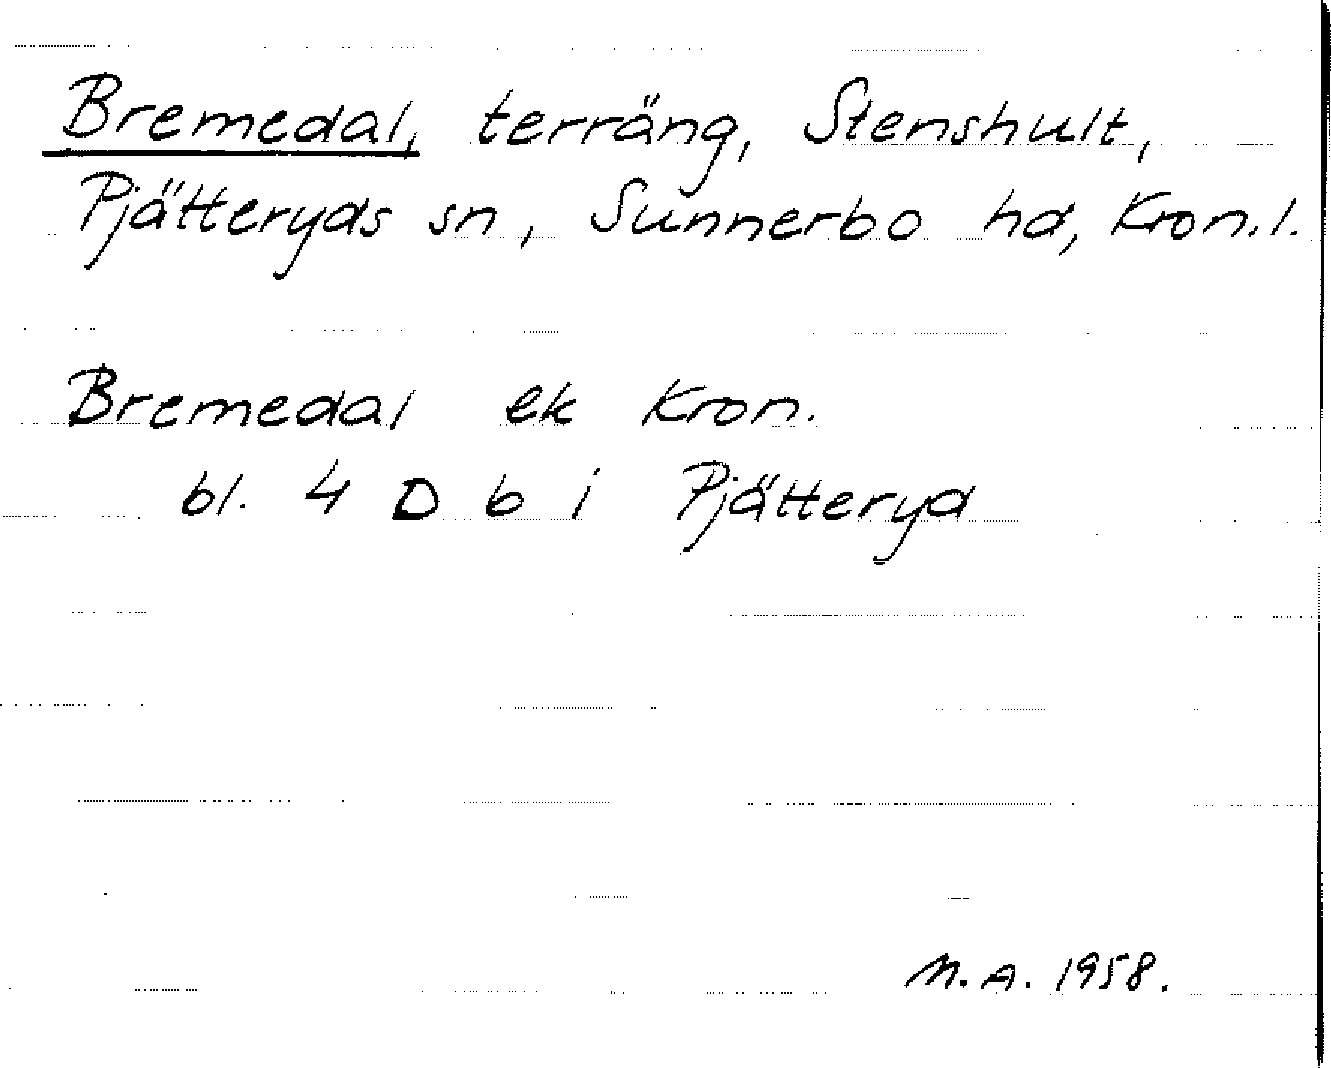 Bremedal, terräng, Stenshult,
Pjätteryds sn, Sunnerbo hd, Kron.l.
Bremedal ek Kron.
bl. 4 D b i Pjätteryd
M.A. 1958.